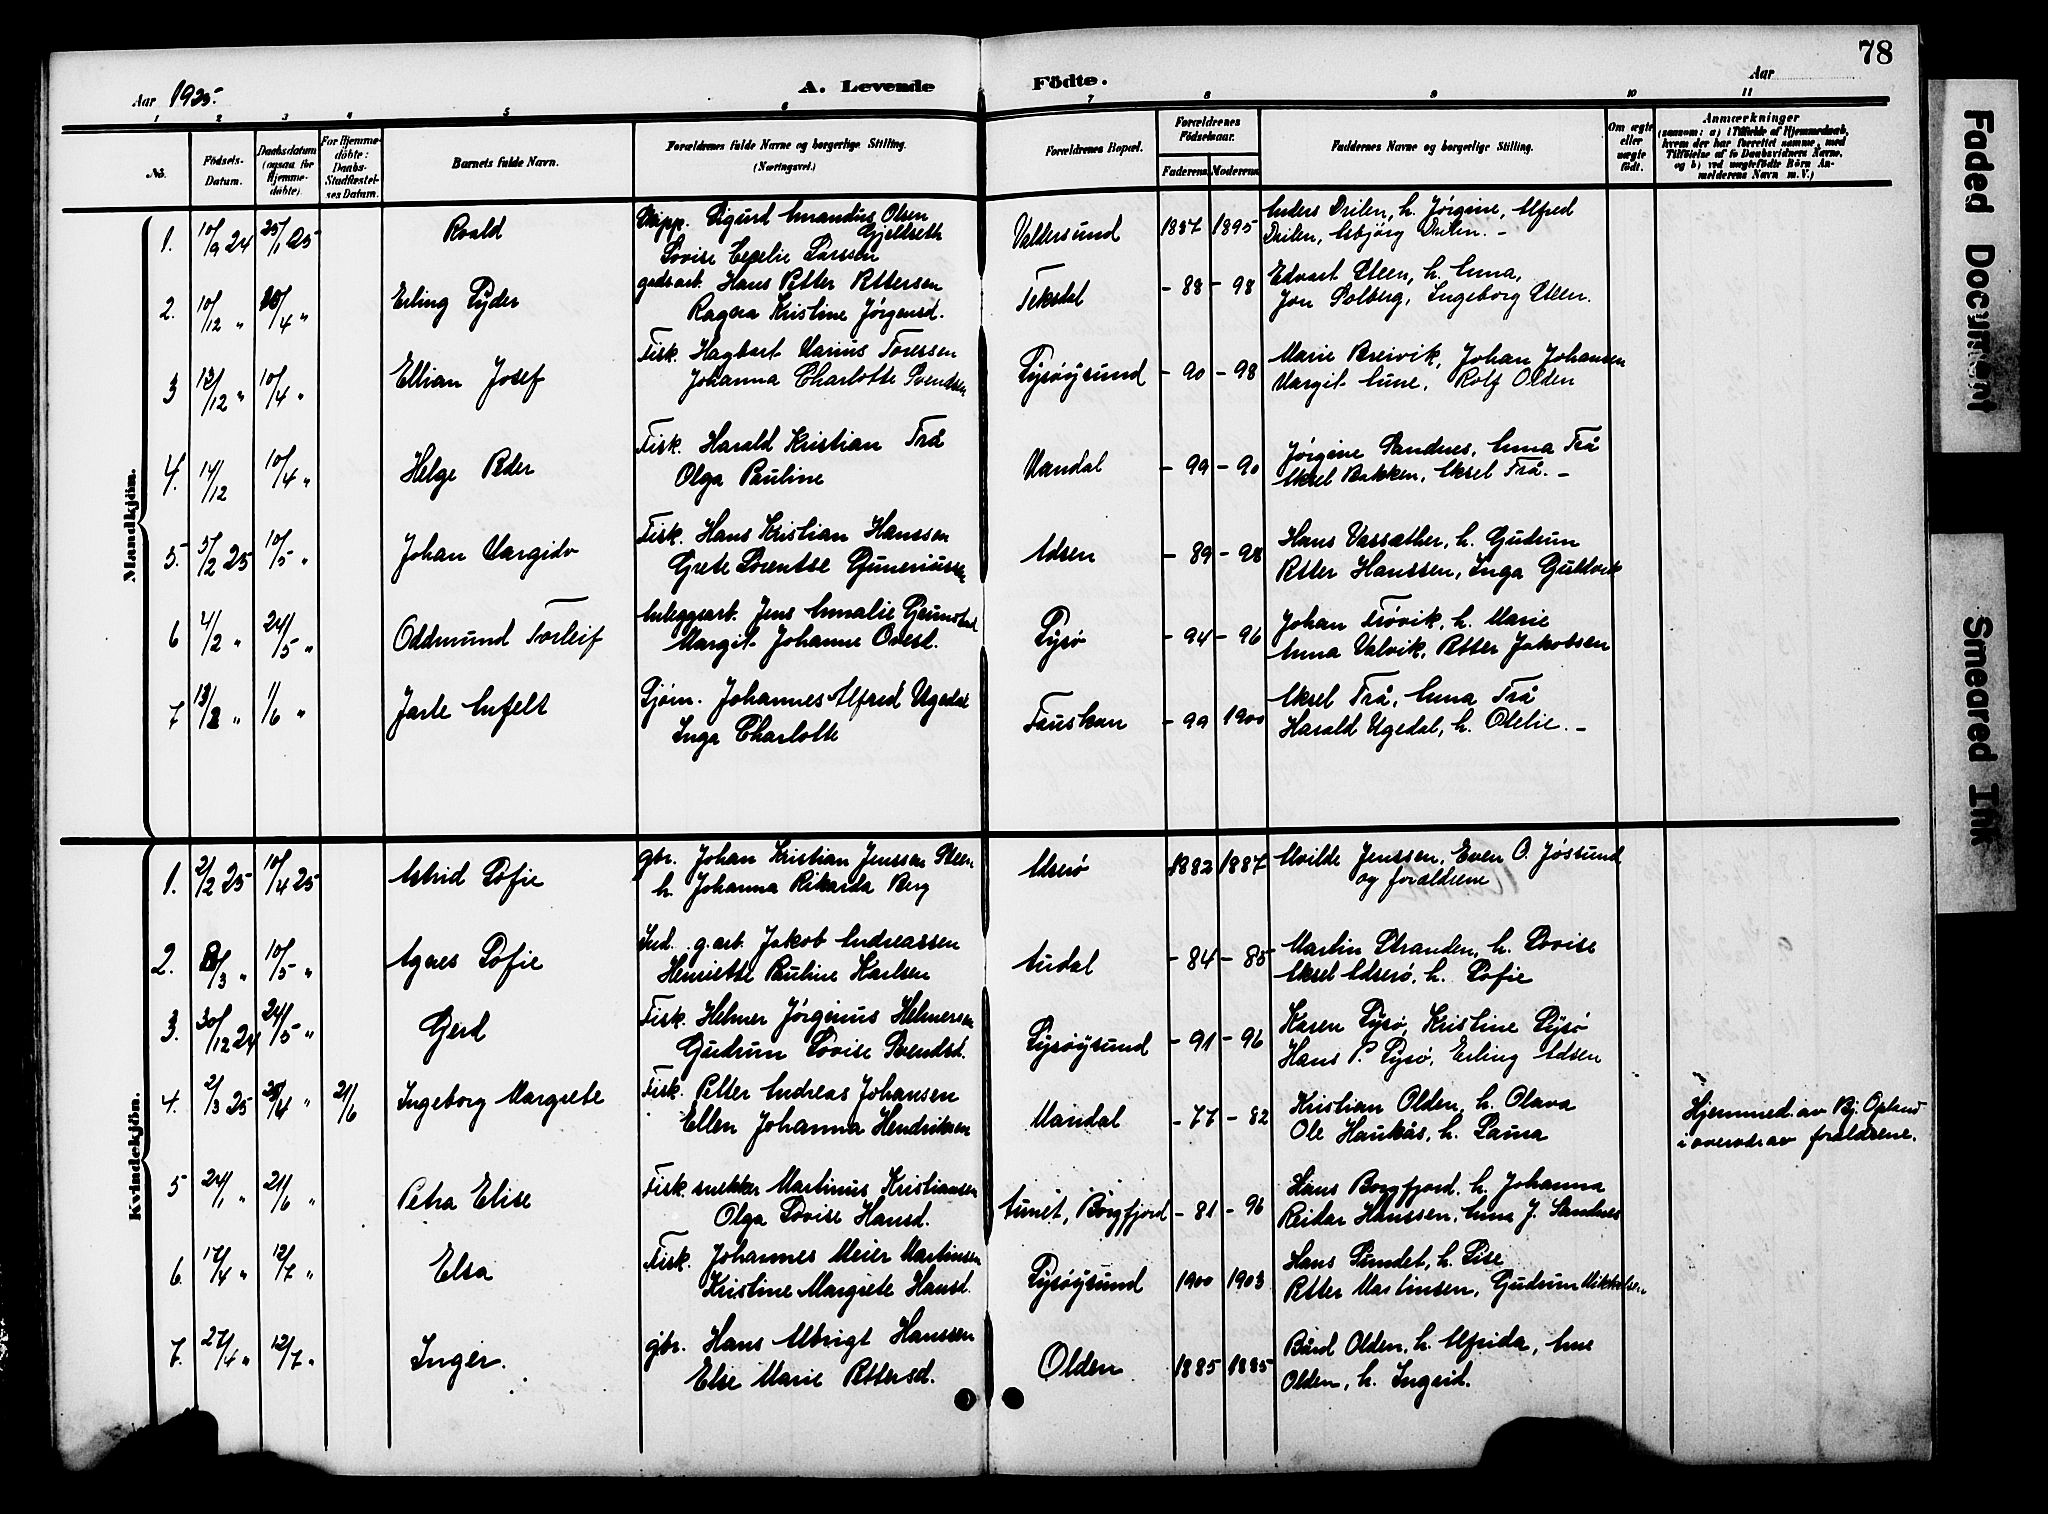 78
Aar 1925.
A. Levende Födte.
Aar
1 2 3 4 5 6 7 8 9 10 11
No.
Födsels-
Datum.
Daabsdatum
(ogsaa for
Hjemme-
döbte).
For Hjemme-
döbte:
Daabs-
Stadfæstel-
ses Datum.
Barnets fulde Navn.
Forældrenes fulde Navne og borgerlige Stilling.
(Næringsvei.)
Forældrenes Bopæl.
Forældrenes
Födselsaar.
Faderens Moderens
Faddernes Navne og borgerlige Stilling.
Om ægte
eller
uægte
født.
Anmærkninger
(saasom: a) i Tilfælde af Hjemmedaab,
hvem der har forrettet samme, med
Tilföielse af to Daabsvidners Navne,
og b) ved uægtefödte Börn An-
melderens Navn m. V.)
Mandkjön.
1. 10/9 24 25/1 25 Roald
Skipp. Sigurd Amandus Olsen
Gjeltseth
Lovise Cecelie Larssen
Valdersund 1887 1895
Anders Drilen, h. Jørgine, Alfred
Drilen, Asbjørg Drilen. -
2. 10/12 " /4 " Erling Peder
gådsarb. Hans Petter Pettersen
Ragna Kristine Jørgensd.
Teksdal - 88 - 98
Edvart Steen, h. Anna,
Jon Solberg, Ingeborg Steen.
3 13/12 " 10/4 " Ellian Josef
Fisk. Hagbart Marius Toressen
Johanna Charlotte Svendsen
Lysøysund - 90 - 98
Marie Breivik, Johan Johansen
Margit Aune, Rolf Olden
4. 14/12 10/4 " Helge Peder
Fisk. Harald Kristian Trå
Olga Pauline
Mandal - 99 - 90
Jørgine Sandnes, Anna Trå
Aksel Bakken, Aksel Trå. -
5. 5/2 25 10/5 " Johan Margido
Fisk. Hans Kristian Hanssen
Grete Lorentse Guneriussen
Adsen - 89 - 98
Hans Vassæther, h. Gudrun
Petter Hanssen, Inga Gullvik
6 4/2 " 24/5 " Oddmund Torleif
Anleggsarb. Jens Annalie Grunstad
Margit Johanne
Lysø - 94 - 96
Johan Trøvik, h. Marie
Anna Valvik, Petter Jakobsen
7 13/2 " 1/6 " Jarle Anfelt
Sjøm. Johannes Alfred Ugedal
Inga Charlotte
- 99 1900
Aksel Trå, Anna Trå
Harald Ugedal, h. Otelie. -
Kvindekjön.
1. 2/2 25 10/4 25 Astrid Sofie
gbr. Johan Kristian Jenssen Steen
h. Johanna Rikarda Berg
Adserø 1882 1887
Alvilde Jenssen, Even O. Jøssund
og foreldrene
2. 8/3 " 10/5 " Agnes Sofie
Ind. g.arb. Jakob Andreassen
Henriette Pauline Karlsen
Audal - 84 - 85
Martin Stranden, h. Lovise
Aksel Adserø, h. Sofie
3. 30/12 24 24/5 " Gerd
Fisk. Helmer Jørginus Helmersen
Gudrun Lovise Svendsd.
Lysøysund - 91 - 96
Karen Lysø, Kristine Lysø
Hans P. Lysø, Erling Adsen
4. 2/3 25 /4 " 21/6 Ingeborg Margrete
Fisk. Petter Andreas Johansen
Ellen Johanna Hendriksen
Mandal - 77 - 82
Kristian Olden, h. Olava
Ole Haukås, h. Laura
Hjemmed. av Bj. Opland
i overvær av foreldrene.
5 24/1 " 21/6 " Petra Elise
Fisk. snekker Martinus Kristiansen
Olga Lovise Hansd.
Aunet, Børgfjord - 81 - 96
Hans Borgfjord, h. Johanna
Reidar Hanssen, Anna J. Sandnes
6. 17/4 " 12/7 " Elsa
Fisk. Johannes Meier Martinsen
Kristine Margrete Hansd.
Lysøysund 1900 1903
Hans Sundet, h. Lise
Petter Martinsen, Gudrun Mikkelsen
7. 27/4 " 12/7 " Inger.
gbr. Hans Albrigt Hanssen
Else Marie Pettersd.
Olden 1885 1885
Bård Olden, h. Alfrida, Arne
Olden, h. Ingrid.
Faded Document
Smeared Ink